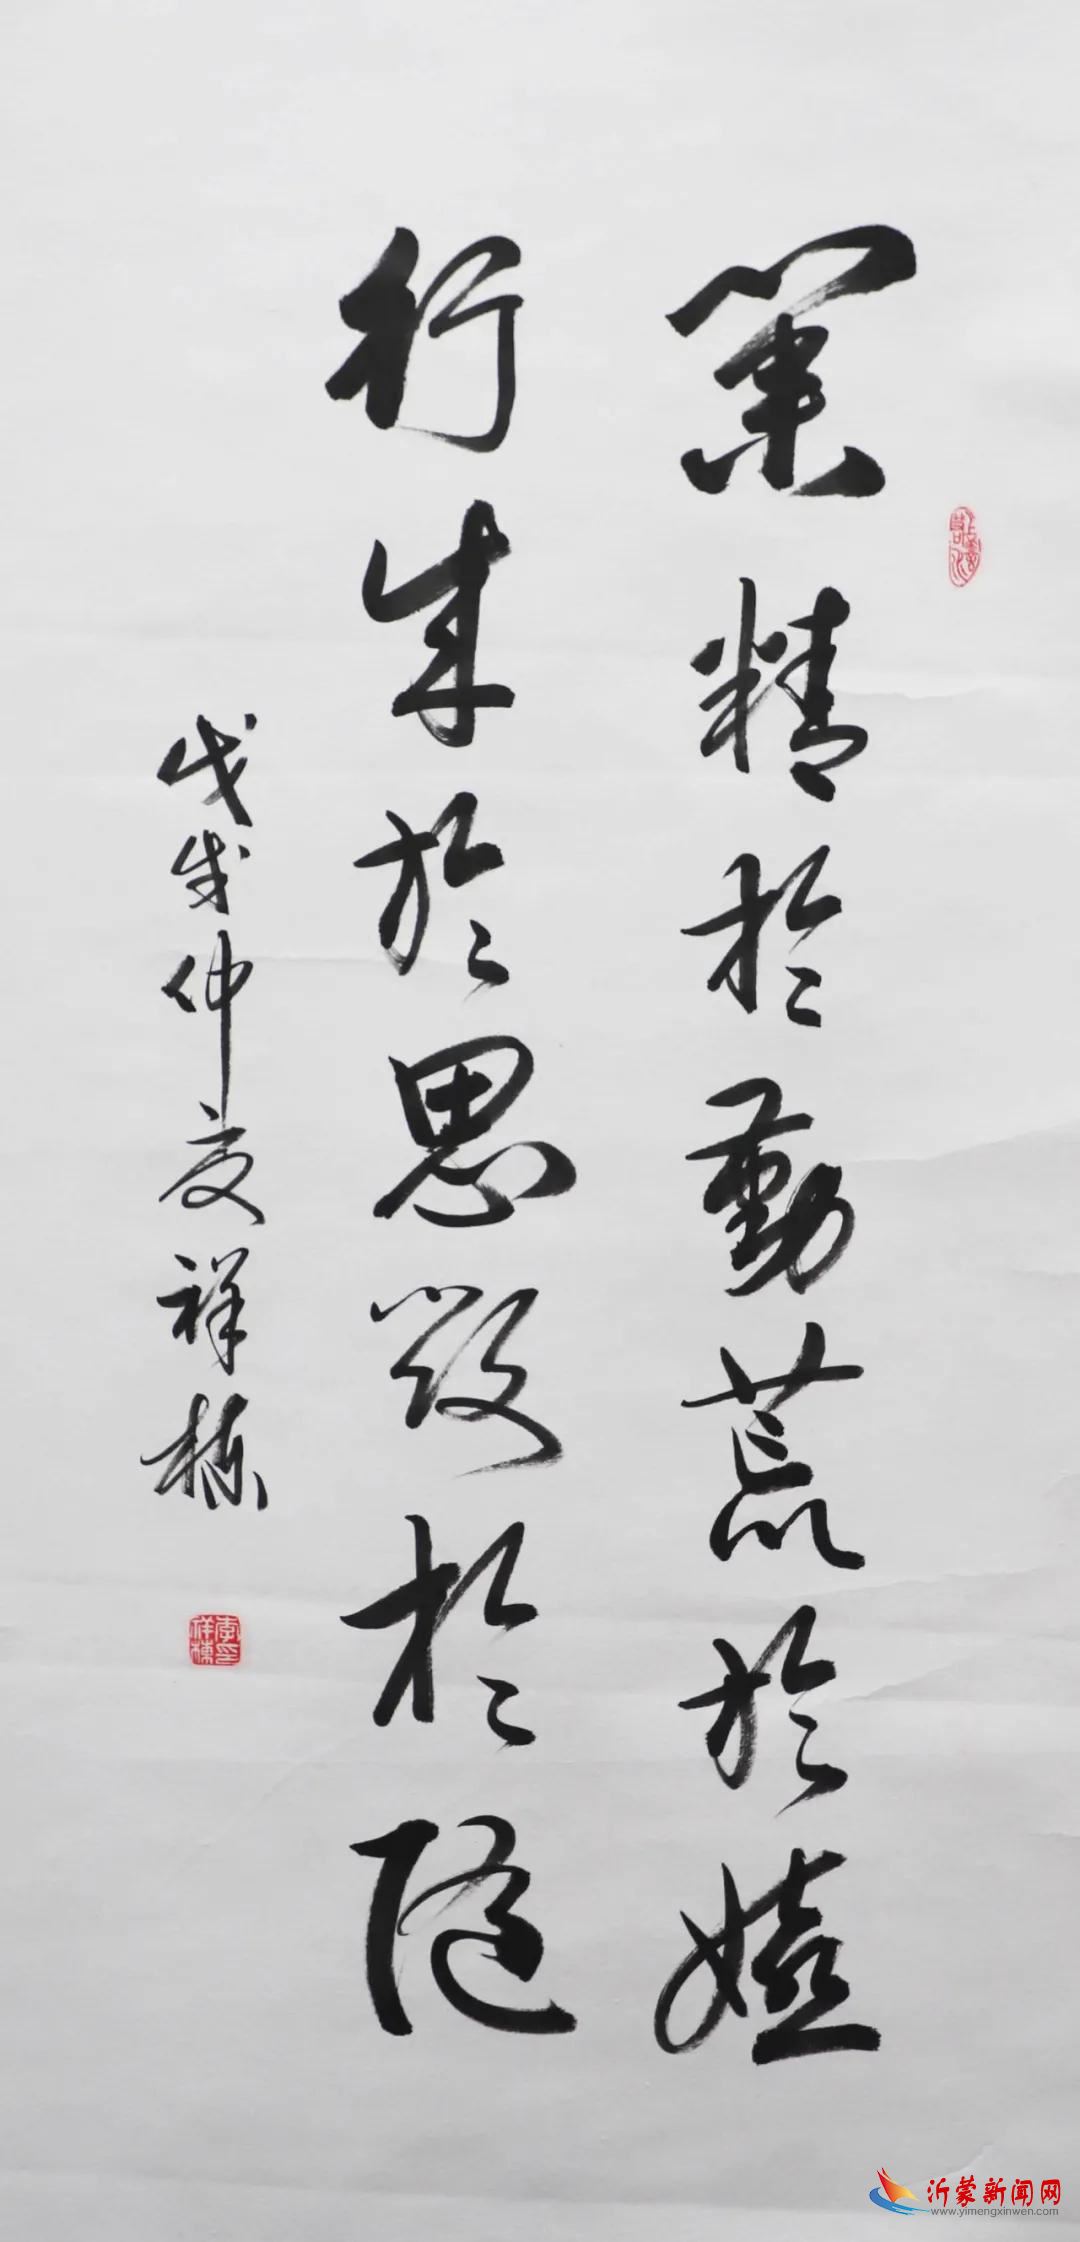 業精於勤荒於嬉
行成於思毀於隨
戊戌仲夏祥棟
李印祥棟
沂蒙新闻网
www.yimengxinwen.com